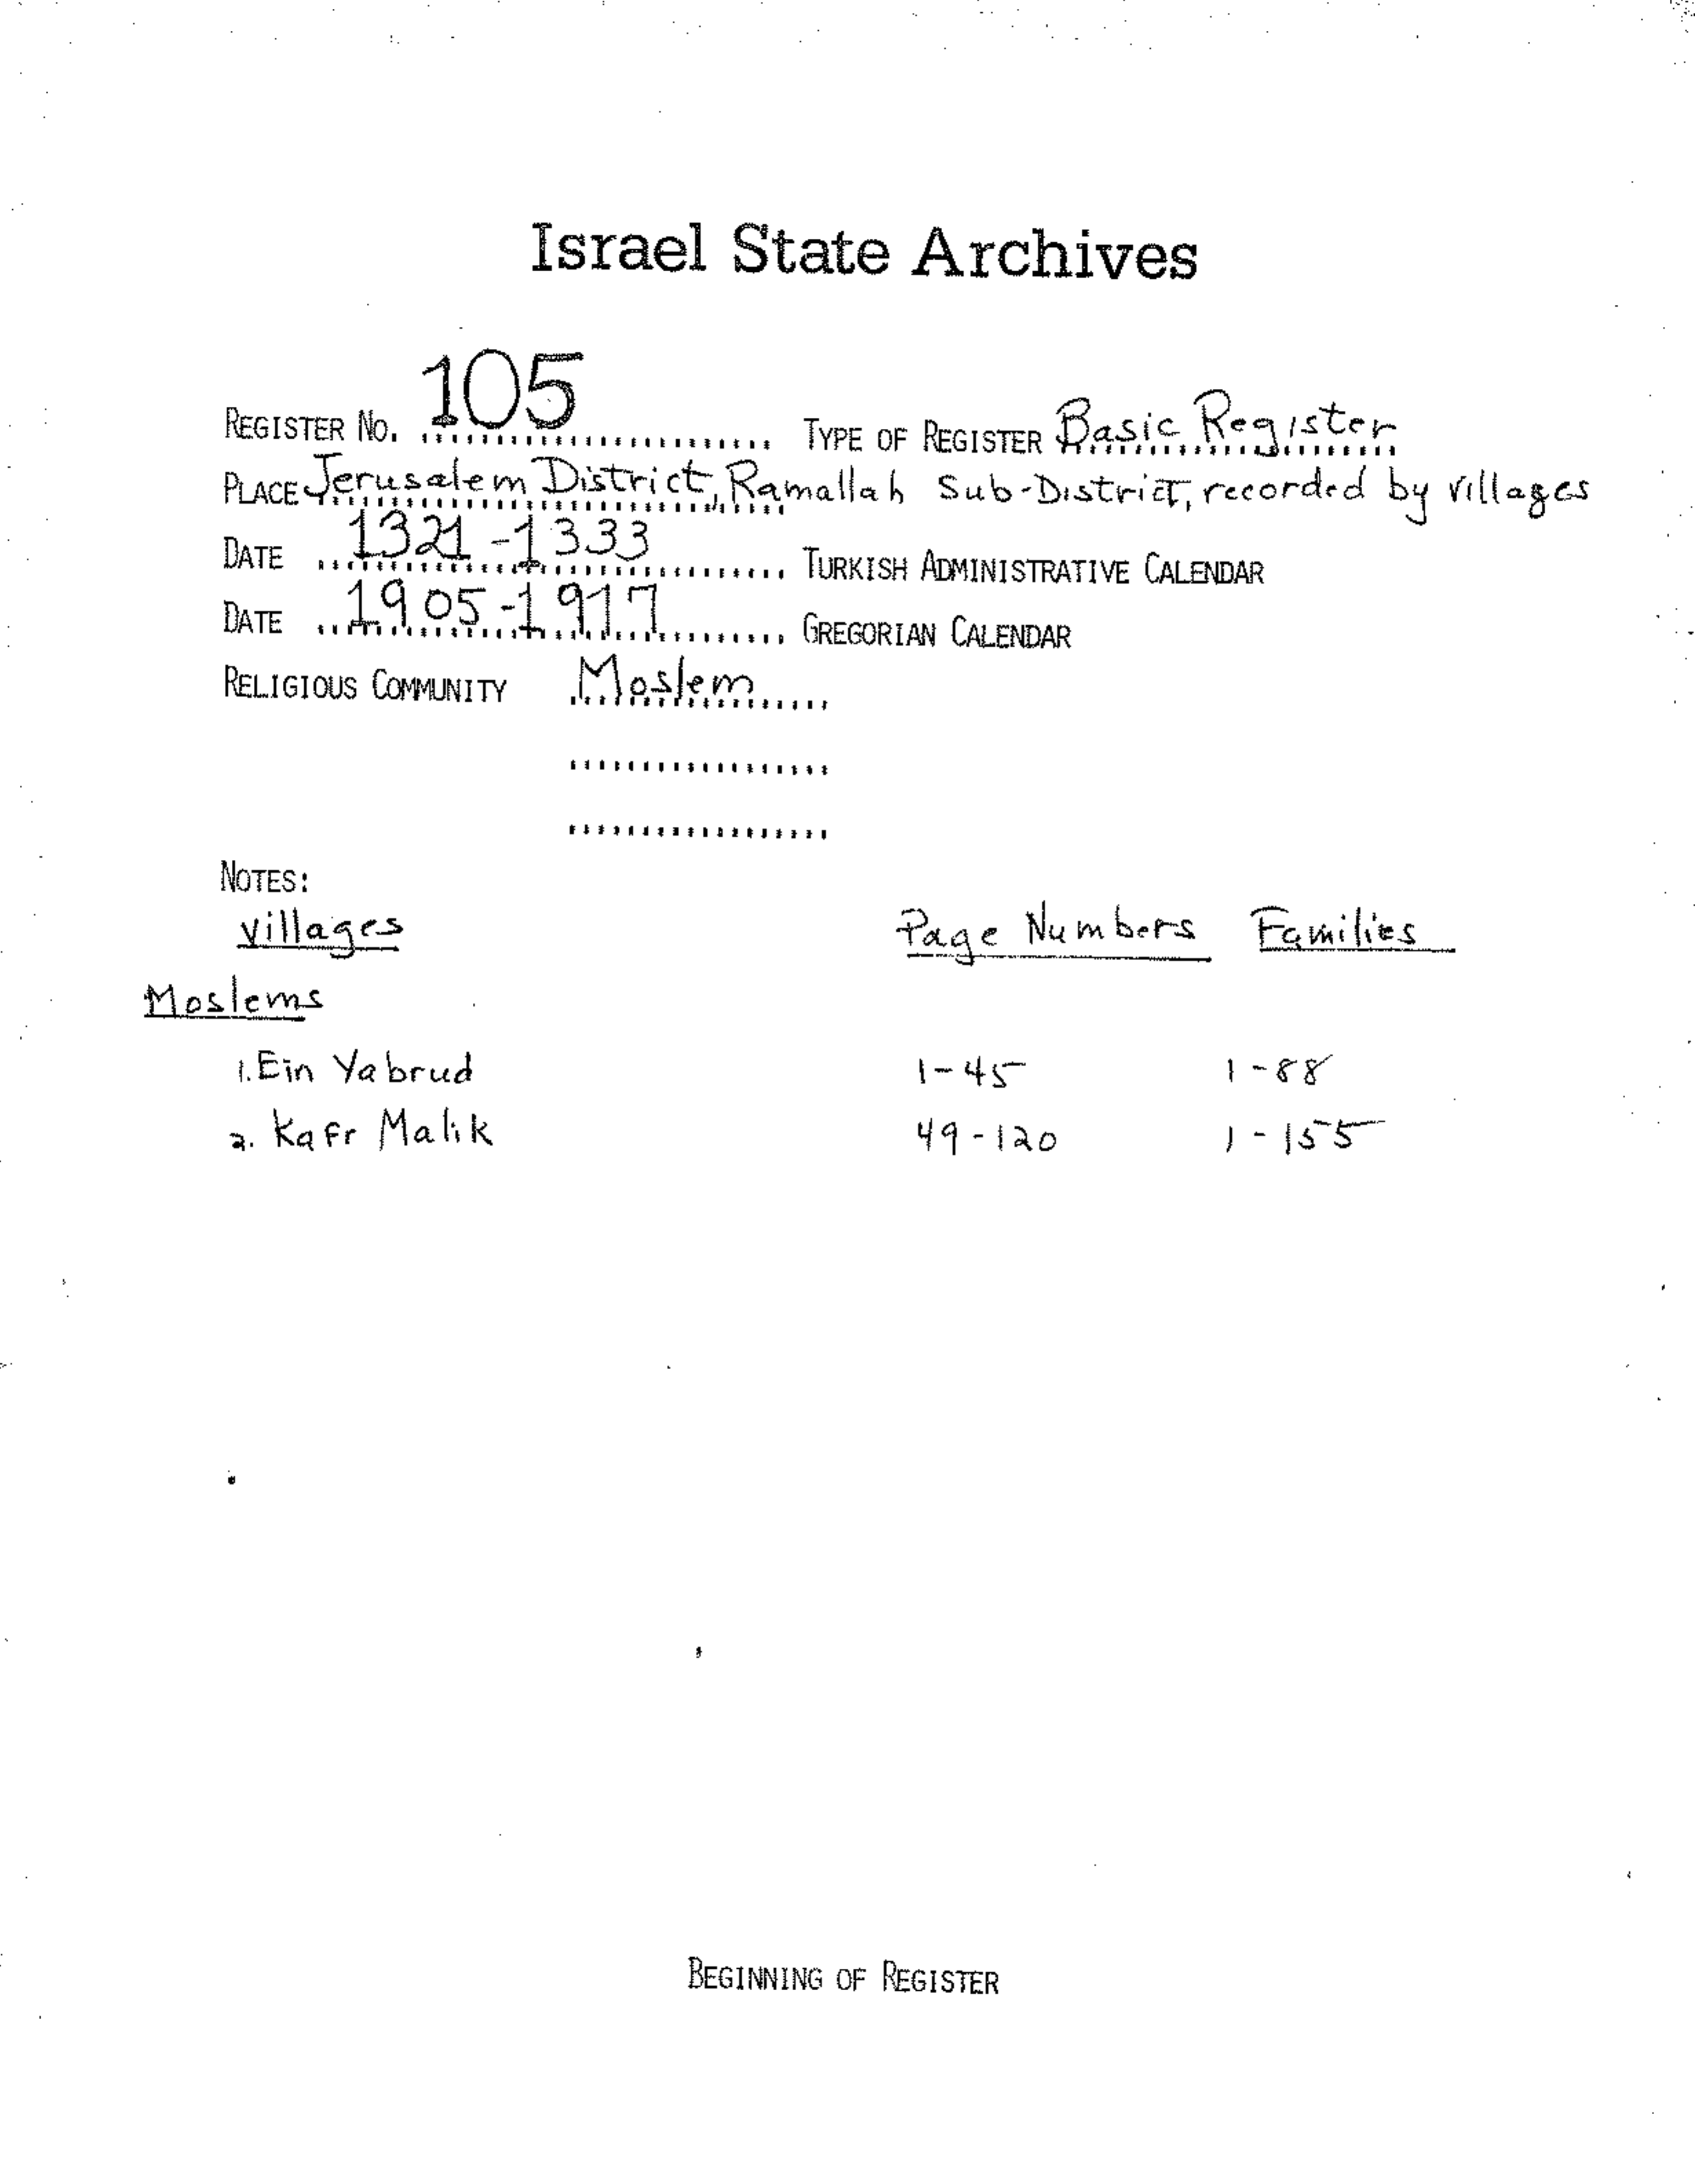 Israel State Archives
REGISTER NO. 105 TYPE OF REGISTER Basic Register
PLACE Jerusalem District, Ramallah Sub-District, recorded by villages
DATE 1321-1333 TURKISH ADMINISTRATIVE CALENDAR
DATE 1905-1917 GREGORIAN CALENDAR
RELIGIOUS COMMUNITY Moslem
NOTES:
villages Page Numbers Families
Moslems
1. Ein Yabrud 1-45 1-88
2. Kafr Malik 49-120 1-155
BEGINNING OF REGISTER